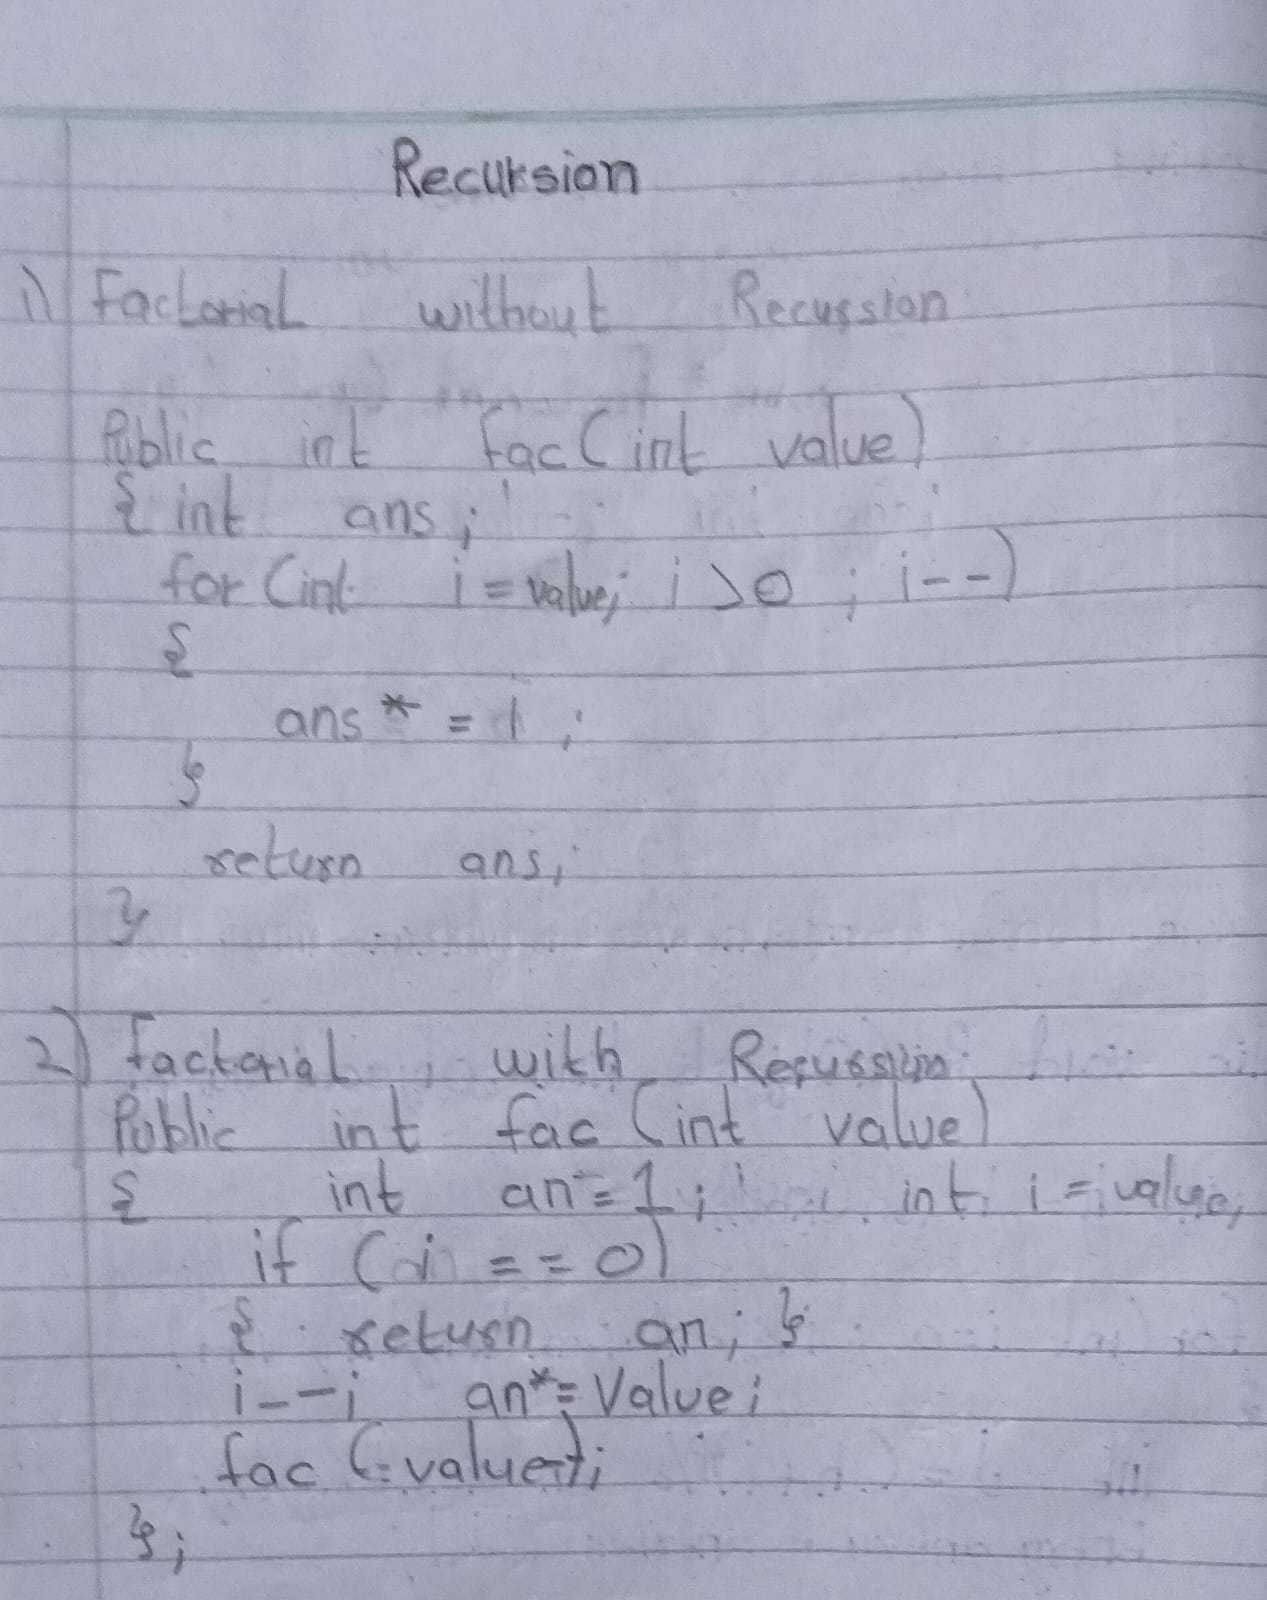 Recursion
1) Factorial without Recurssion
Public int fac (int value)
{ int ans;
for (int i = value; i > 0 ; i--)
{
ans * = i ;
}
return ans;
}
2) factorial with Recussion
Public int fac (int value)
{ int an = 1 ; int i = value;
if (i == 0)
{ return an; }
i--; an*= Value;
fac (value);
};